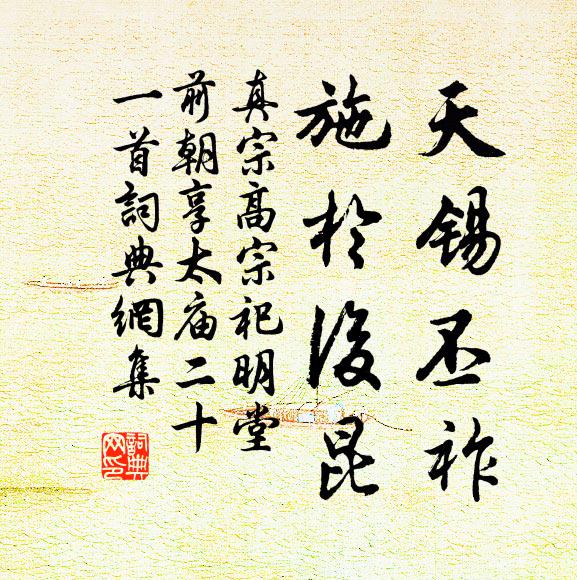 天錫丕祚
施於後昆
真宗高宗祀明堂
前朝享太庙二十
一首詞典網集
詞典网印